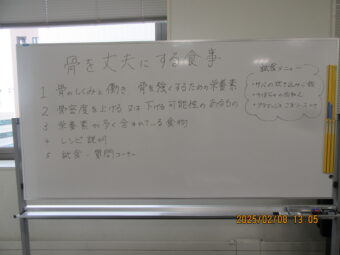 骨を丈夫にする食事
1 骨のしくみと働き 骨を強くするための栄養素
2 骨密度を上げる又は下げる可能性のあるもの
3 栄養素が多く含まれている食物
4 レシピ説明
5 試食・質問コーナー
試食メニュー
2025/02/08 13:05